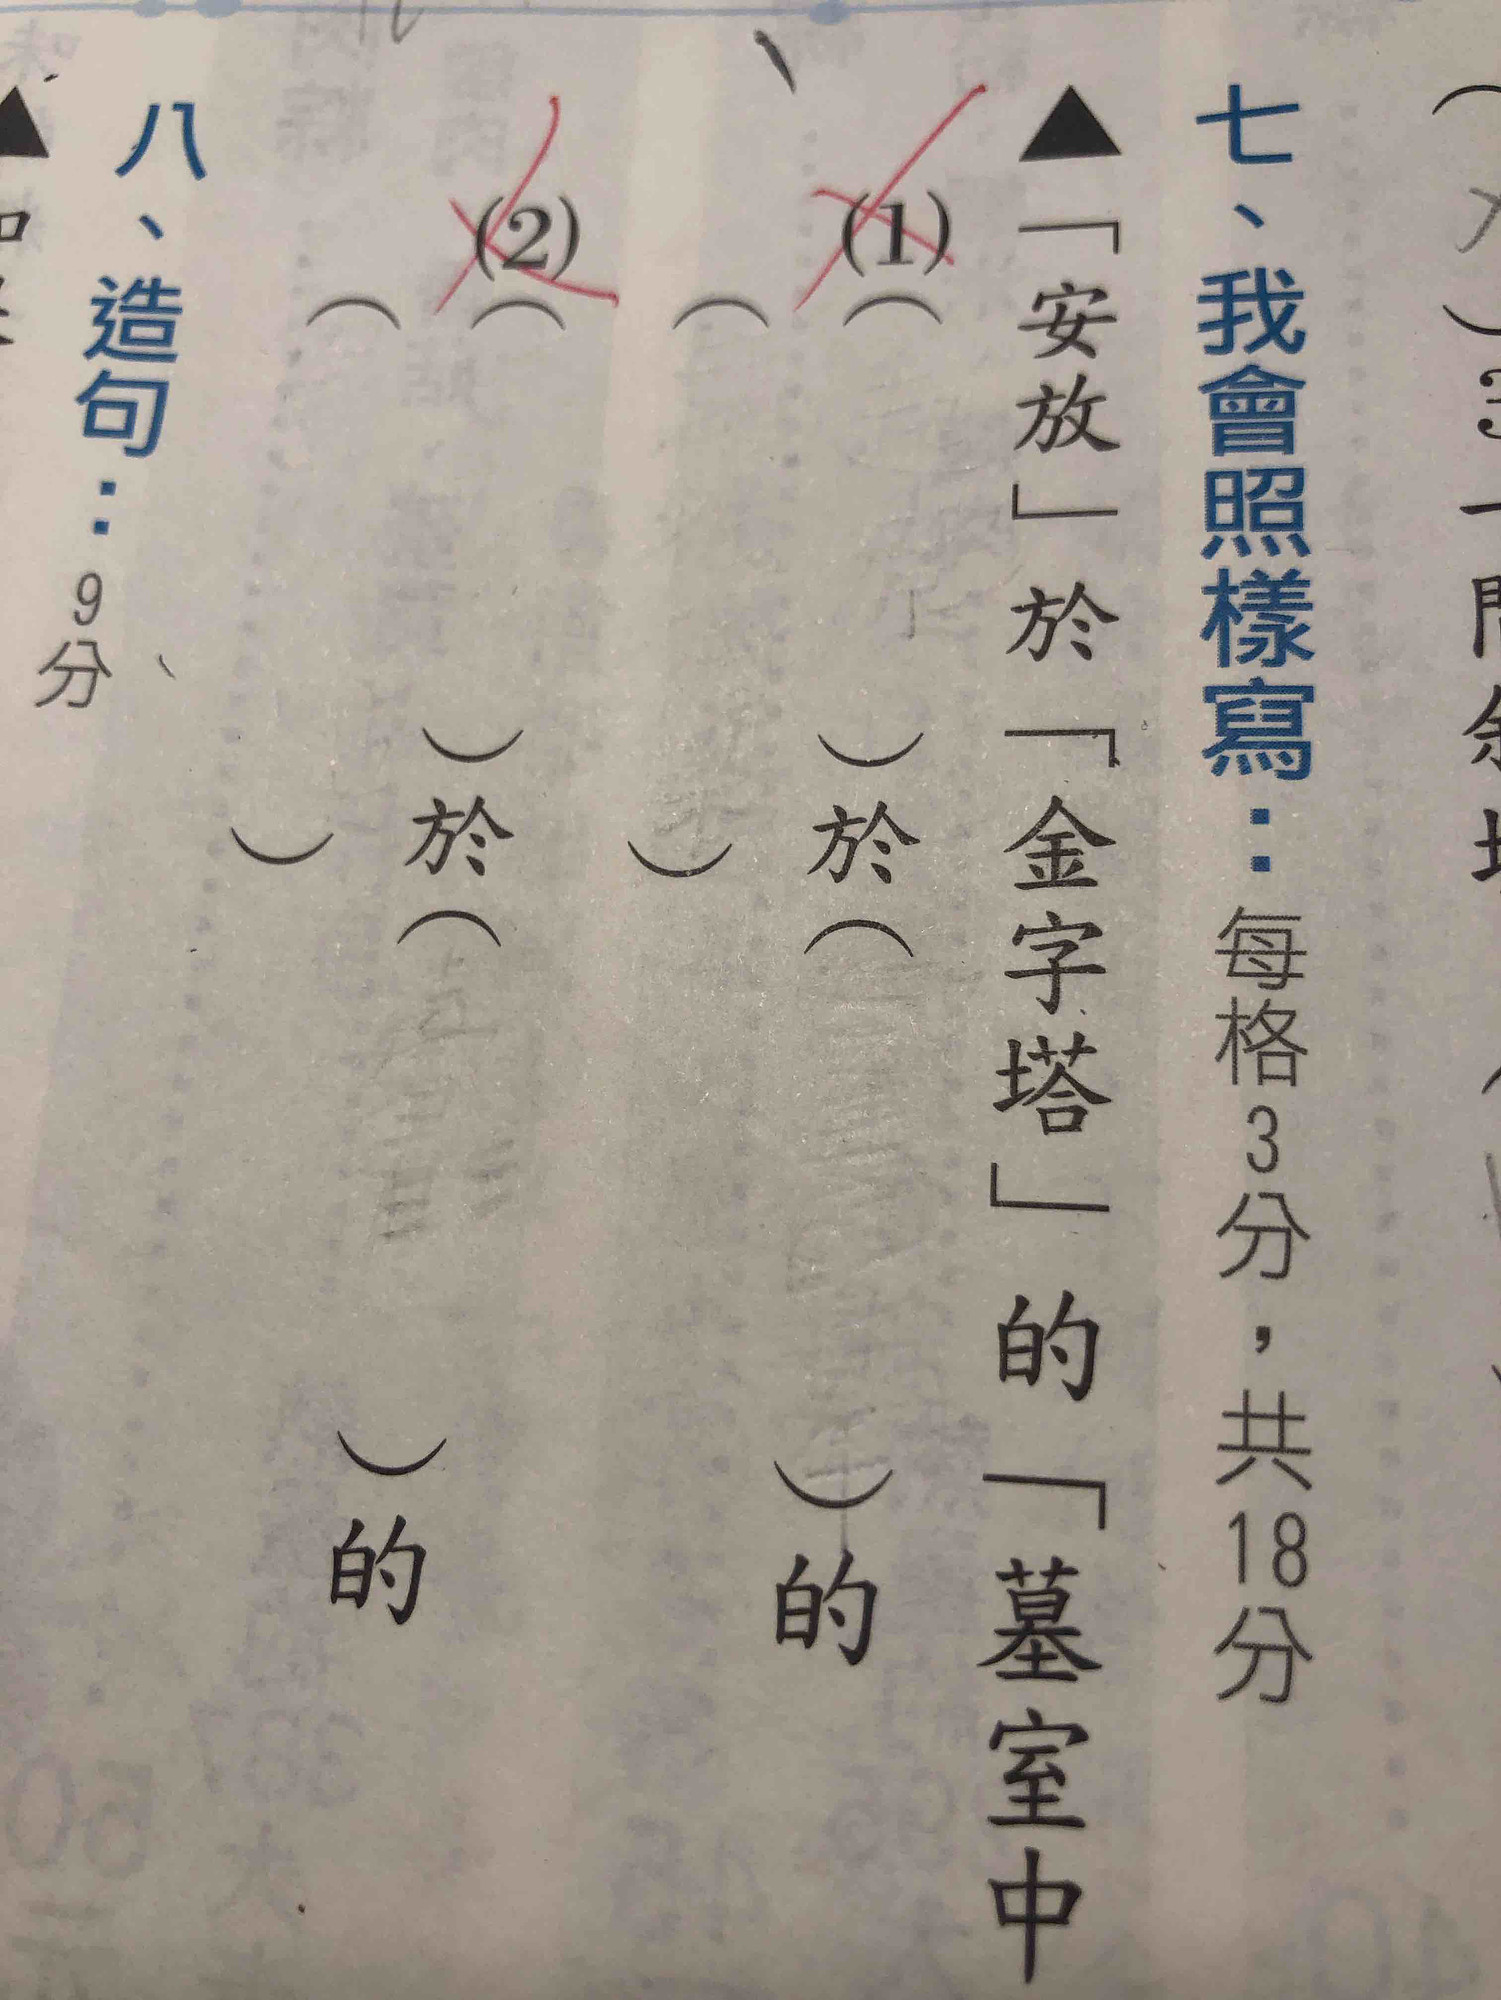 七、我會照樣寫：每格3分，共18分
▲「安放」於「金字塔」的「墓室中
(1)（　）於（　）的
（　）
(2)（　）於（　）的
（　）
八、造句：9分